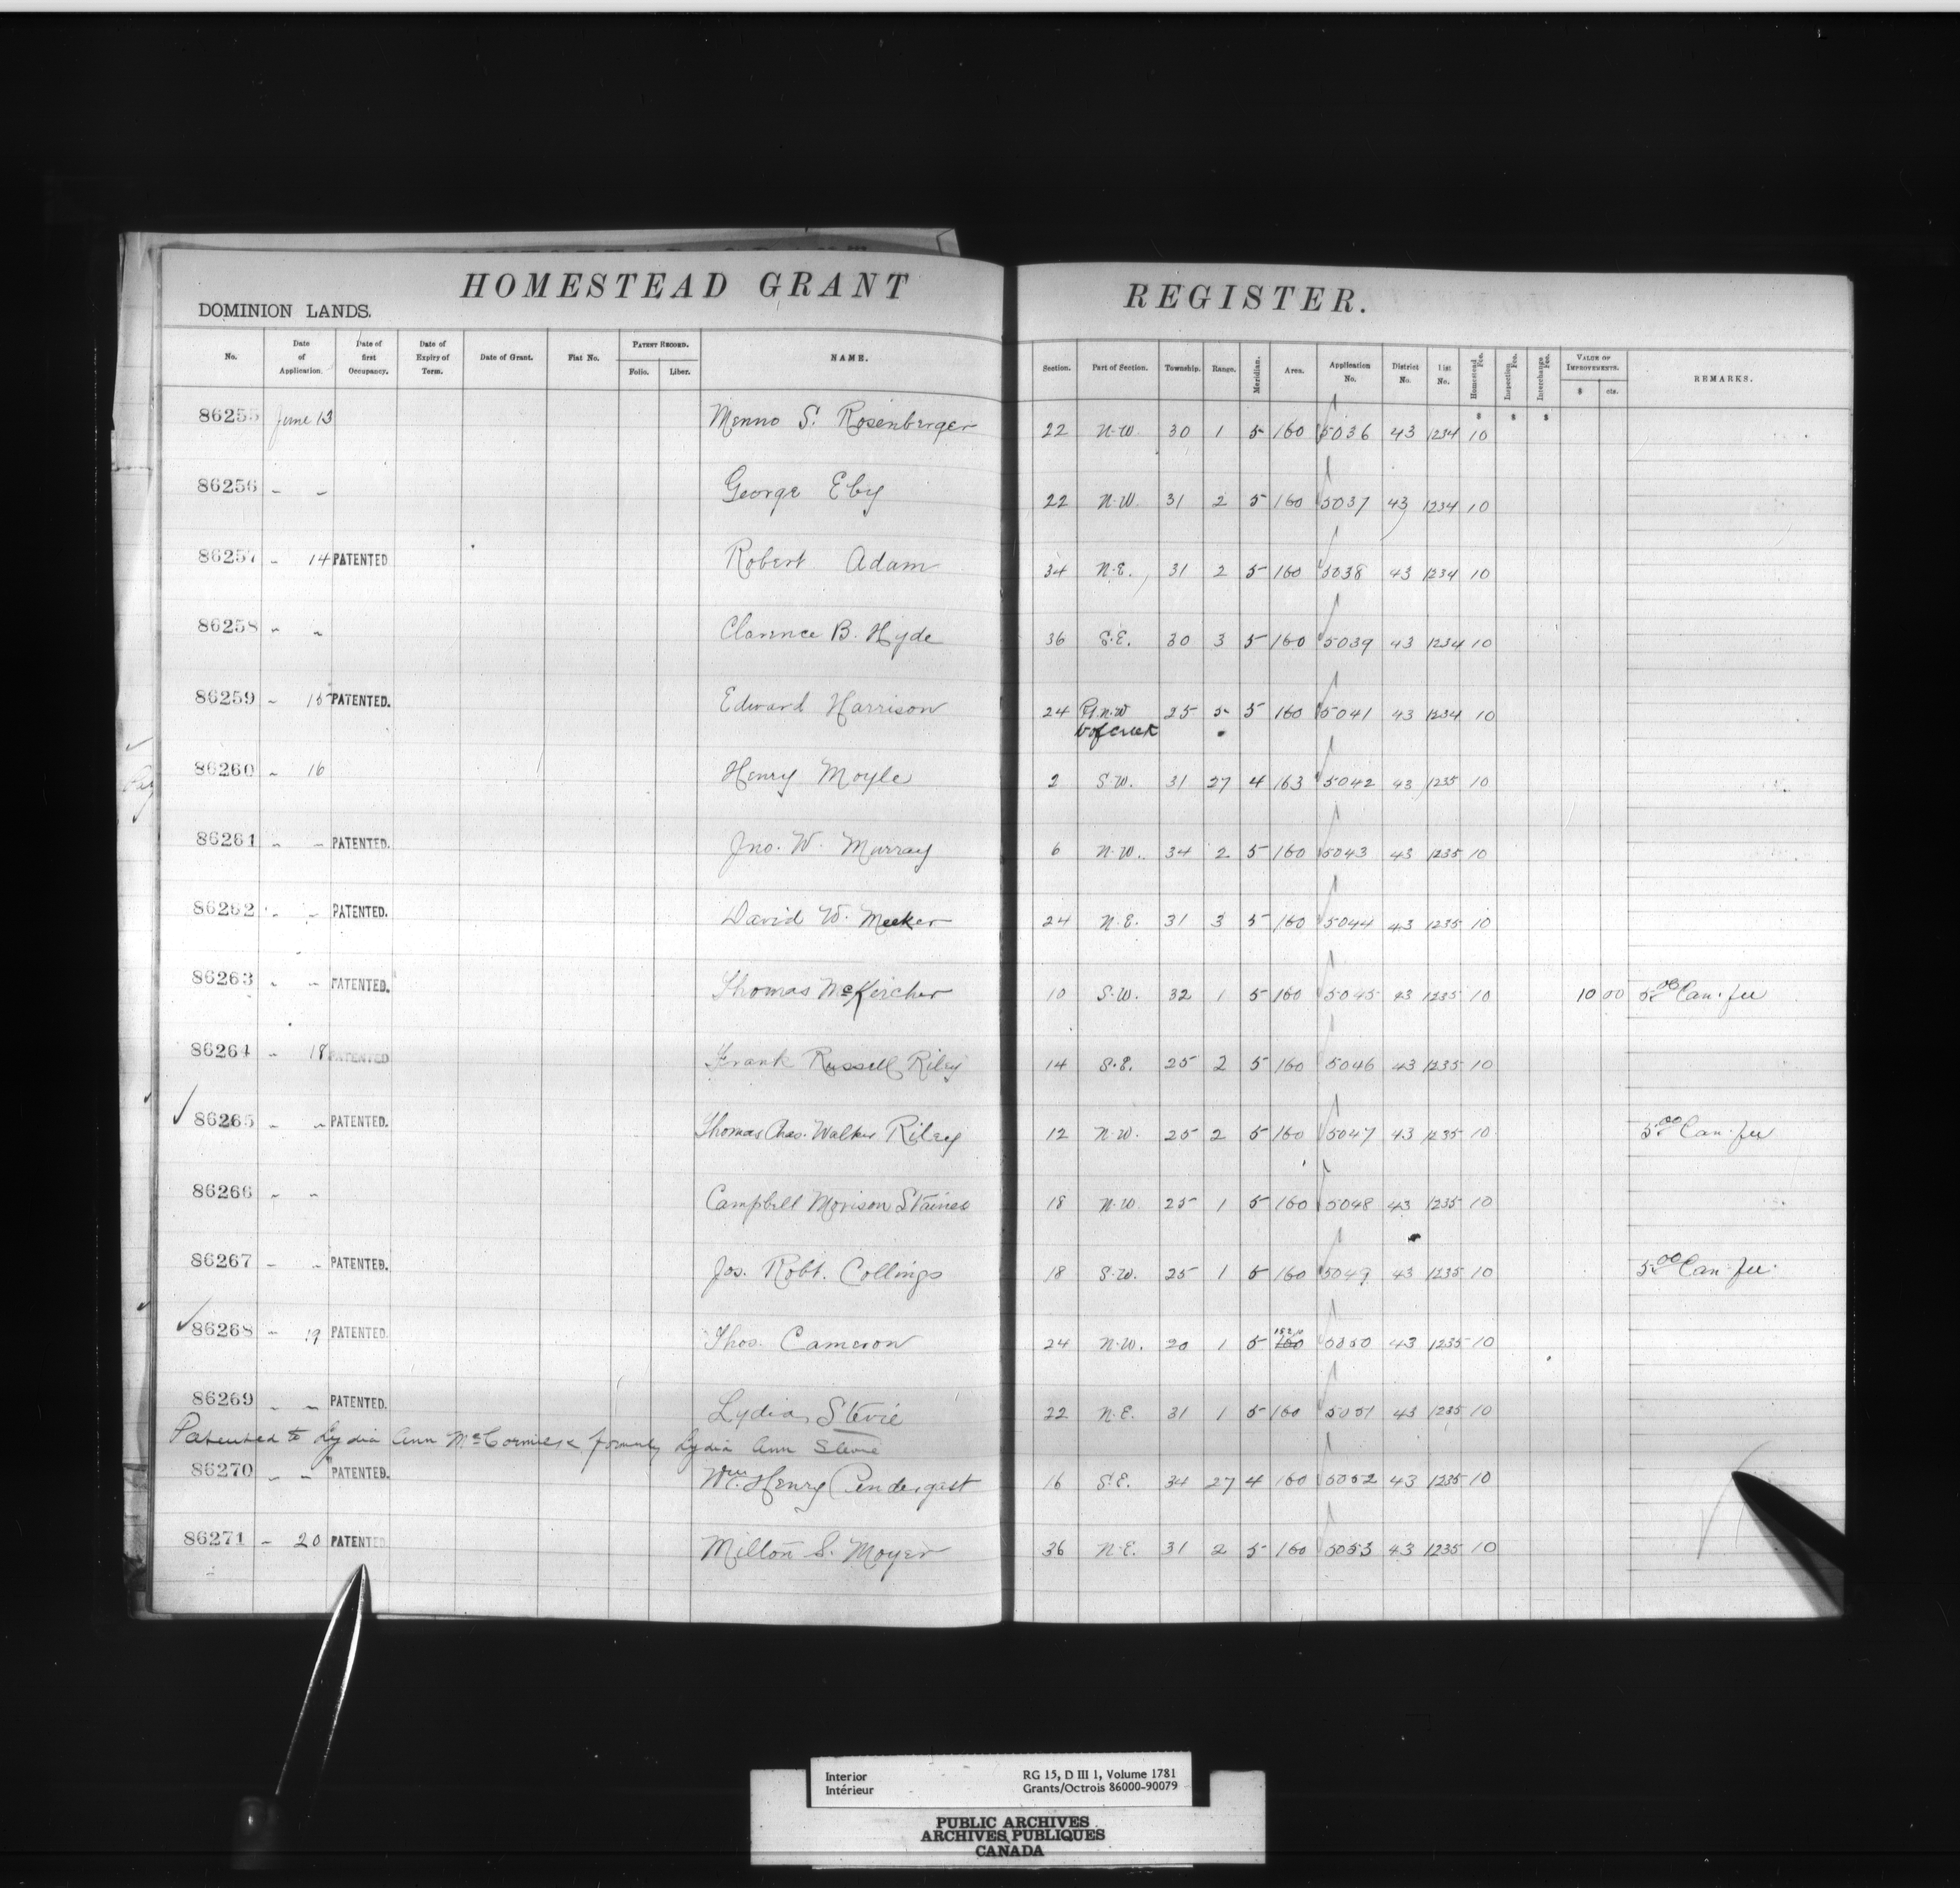 HOMESTEAD GRANT REGISTER.
DOMINION LANDS.
No. Date of Application. Date of first Occupancy. Date of Expiry of Term. Date of Grant. Fiat No. PATENT RECORD. Folio. Liber. NAME. Section. Part of Section. Township. Range. Meridian. Area. Application No. District No. List No. Homestead Fee. Inspection Fee. Interchange Fee. VALUE OF IMPROVEMENTS. $ cts. REMARKS.
$ $ $
86255 June 13 Menno S. Rosenberger 22 N.W. 30 1 5 160 5036 43 1234 10
86256 " " George Eby 22 N.W. 31 2 5 160 5037 43 1234 10
86257 " 14 PATENTED Robert Adam 34 N.E. 31 2 5 160 5038 43 1234 10
86258 " " Clarence B. Hyde 36 S.E. 30 3 5 160 5039 43 1234 10
86259 " 15 PATENTED. Edward Harrison 24 Pt. N.W 25 5 5 160 5041 43 1234 10
W of creek
86260 " 16 Henry Moyle 2 S.W. 31 27 4 163 5042 43 1235 10
86261 " " PATENTED. Jno. W. Murray 6 N.W. 34 2 5 160 5043 43 1235 10
86262 " " PATENTED. David W. Meeker 24 N.E. 31 3 5 160 5044 43 1235 10
86263 " " PATENTED. Thomas McKercher 10 S.W. 32 1 5 160 5045 43 1235 10 10 00 5.00 Can. fee
86264 " 18 PATENTED Frank Russell Riley 14 S.E. 25 2 5 160 5046 43 1235 10
86265 " " PATENTED. Thomas Chas. Walker Riley 12 N.W. 25 2 5 160 5047 43 1235 10 5.00 Can. fee
86266 " " Campbell Morison Staines 18 N.W 25 1 5 160 5048 43 1235 10
86267 " " PATENTED. Jos. Robt. Collings 18 S.W. 25 1 5 160 5049 43 1235 10 5.00 Can. fee
86268 " 19 PATENTED. Thos. Cameron 24 N.W. 20 1 5 160 5050 43 1235 10
86269 " " PATENTED. Lydia Stevie 22 N.E. 31 1 5 160 5051 43 1235 10
Patented to Lydia Ann McCormick formerly Lydia Ann Stevie
86270 " " PATENTED. Wm. Henry Pendergast 16 S.E. 34 27 4 160 5052 43 1235 10
86271 " 20 PATENTED Milton S. Moyer 36 N.E. 31 2 5 160 5053 43 1235 10
Interior RG 15, D III 1, Volume 1781
Intérieur Grants/Octrois 86000-90079
PUBLIC ARCHIVES
ARCHIVES PUBLIQUES
CANADA